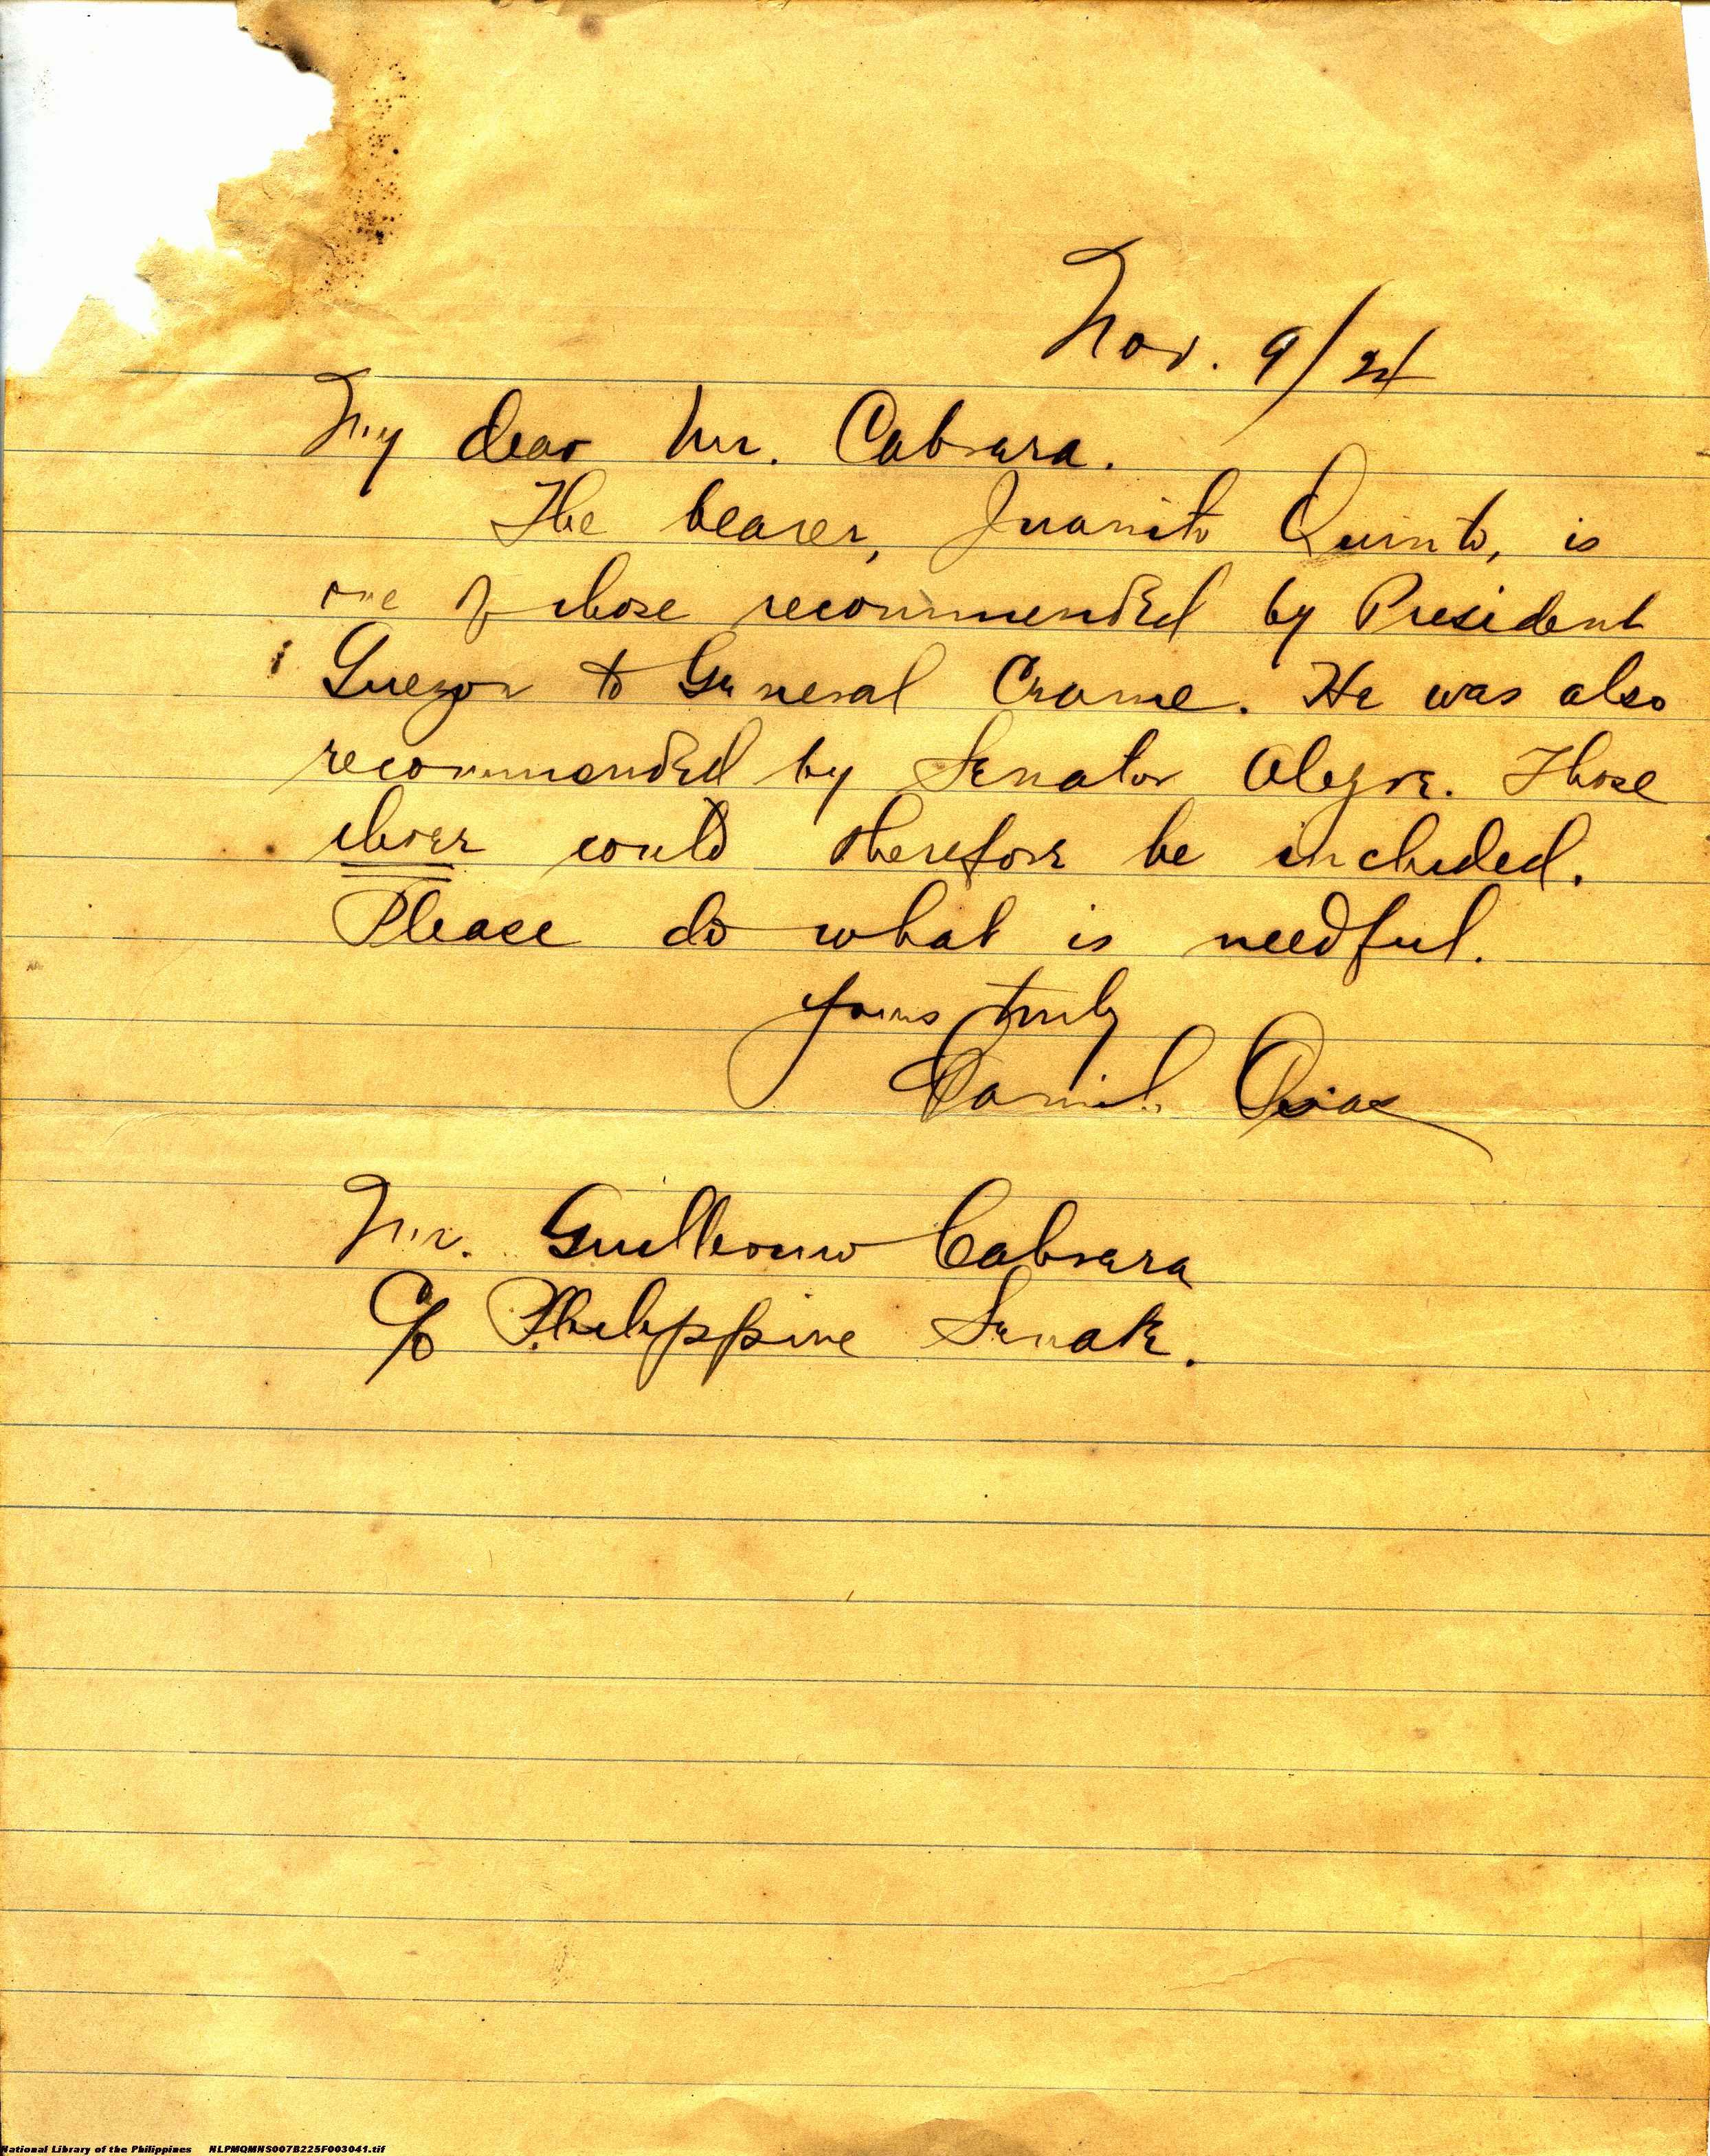 Nov. 9/24
My dear Mr. Cabrera.
The bearer, Juanito Quinto, is
one of those recommended by President
Quezon to General Crame. He was also
recommended by Senator Alegre. Those
three could therefore be included.
Please do what is needful.
Yours truly
Camilo Osias
Mr. Guillermo Cabrera
c/o Philippine Senate.
National Library of the Philippines NLPMQMNS007B225F003041.tif